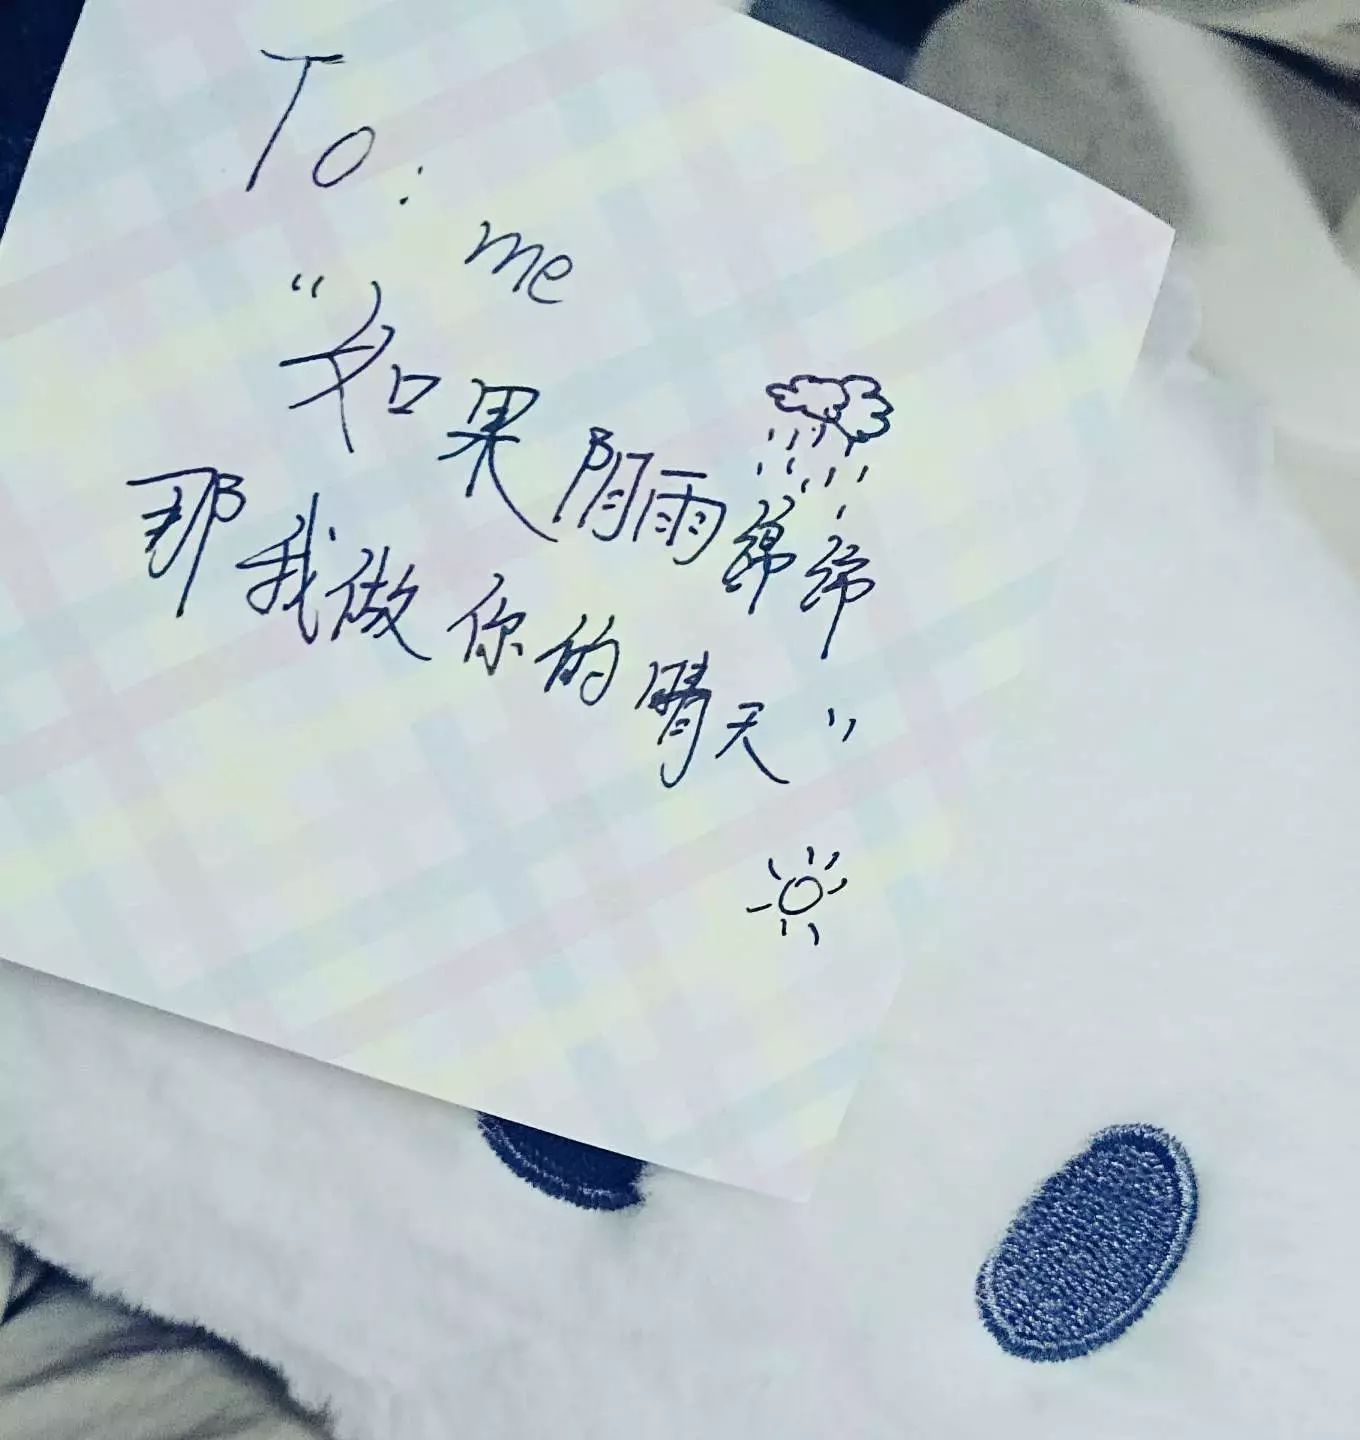 To:
me
“如果阴雨绵绵
那我做你的晴天”